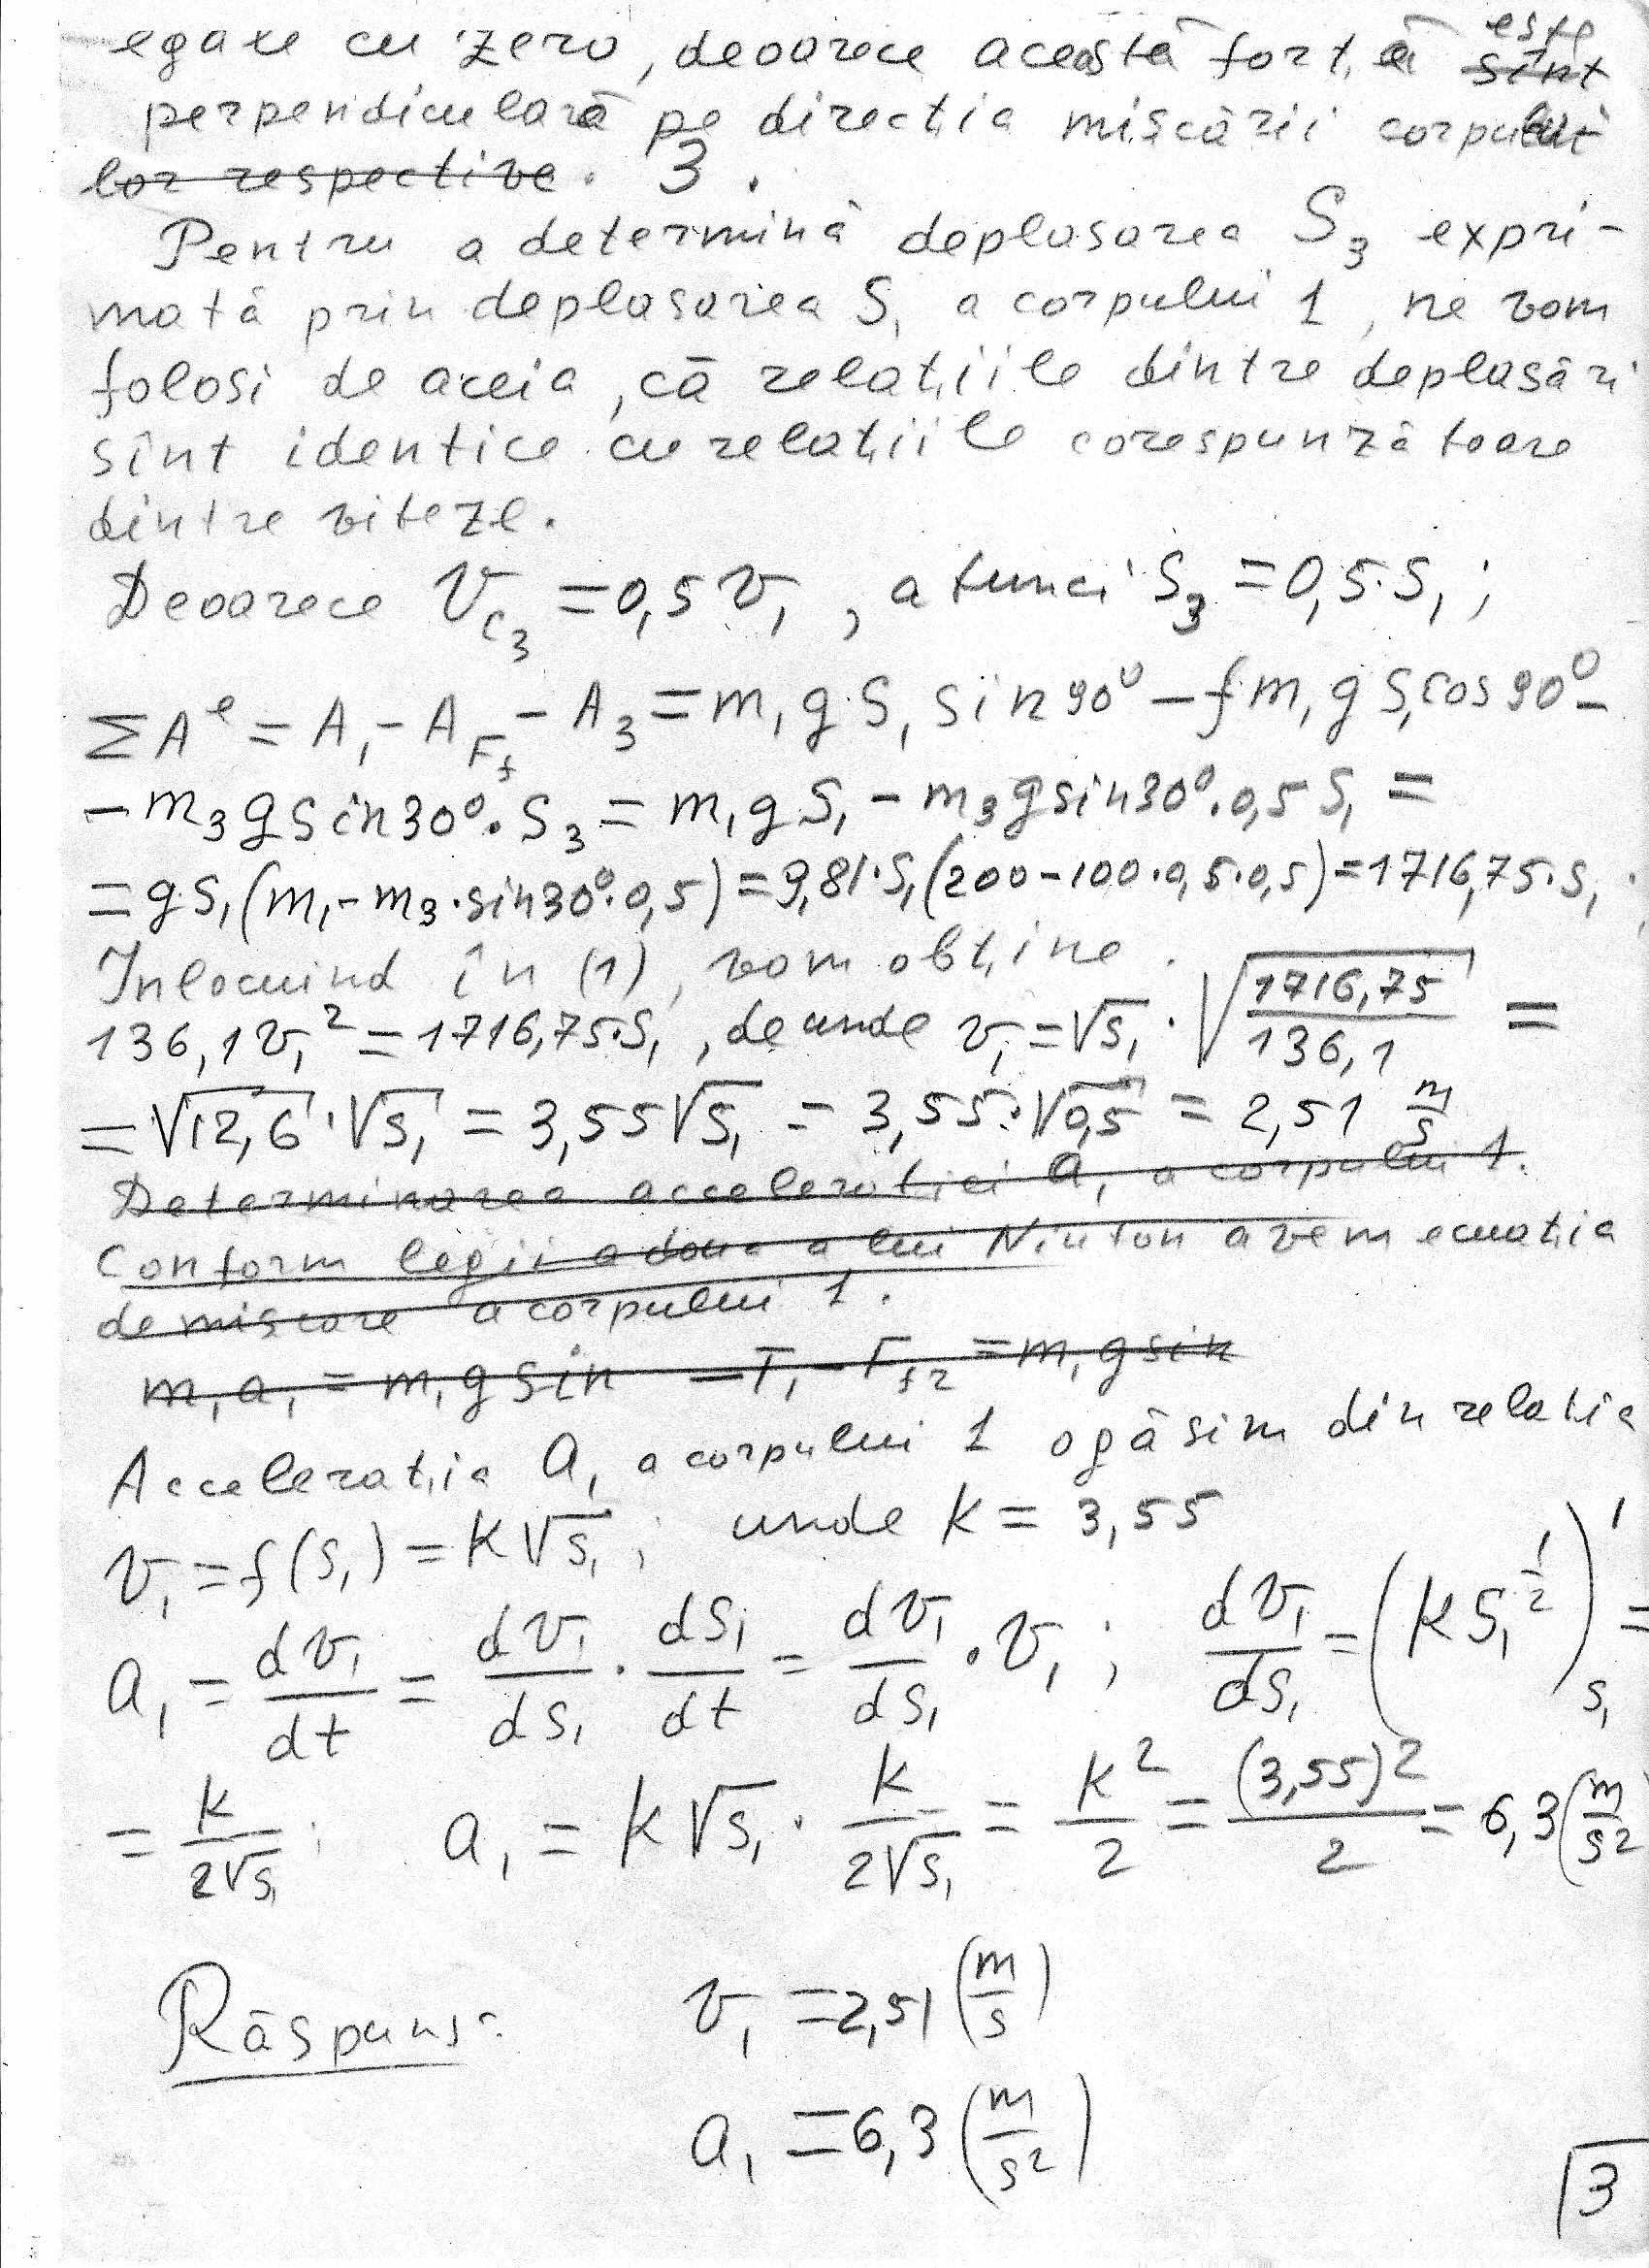 egale cu zero, deoarece această forță este sînt
perpendiculară pe direcția mișcării corpului
lor respective. 3.
Pentru a determină deplasarea S₃ expri-
mată prin deplasarea S₁ a corpului 1, ne vom
folosi de aceia, că relațiile dintre deplasări
sînt identice cu relațiile corespunzătoare
dintre viteze.
Deoarece V_{C₃} = 0,5 v₁, atunci S₃ = 0,5·S₁;
ΣAᵉ = A₁ - A_{F_f} - A₃ = m₁gS₁ sin90⁰ - fm₁gS₁cos90⁰ -
- m₃gsin30⁰·S₃ = m₁gS₁ - m₃gsin30⁰·0,5S₁ =
= gS₁(m₁ - m₃·sin30⁰·0,5) = 9,81·S₁(200-100·0,5·0,5) = 1716,75·S₁;
Inlocuind în (1), vom obține.
136,1v₁² = 1716,75·S₁, de unde v₁ = √S₁ · √(1716,75/136,1) =
= √12,6 · √S₁ = 3,55√S₁ = 3,55·√0,5 = 2,51 m/s
Determinarea accelerației a₁ a corpului 1.
Conform legii a doua a lui Niuton avem ecuația
de miscare a corpului 1.
m₁a₁ = m₁gsin - T₁ - F_{f2} = m₁gsin
Accelerația a₁ a corpului 1 o găsim din relatia
v₁ = f(S₁) = K√S₁; unde K = 3,55
a₁ = dv₁/dt = dv₁/dS₁ · dS₁/dt = dv₁/dS₁ · v₁; dv₁/dS₁ = (KS₁^{1/2})'_{S₁} =
= K/2√S₁; a₁ = K√S₁ · K/2√S₁ = K²/2 = (3,55)²/2 = 6,3(m/s²
Răspuns: v₁ = 2,51 (m/s)
a₁ = 6,3 (m/s²)
3